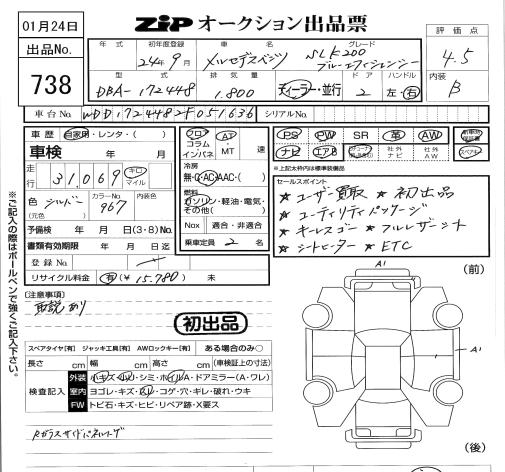 01月24日
ZiP オークション出品票
出品No.
738
評価点
4.5
内装
B
年式
初年度登録
24年9月
車名
メルセデスベンツ
グレード
SLK200
ブルーエフィシェンシー
型式
DBA-172448
排気量
1.800
ディーラー・並行
ドア
2
ハンドル
左・右
車台No.
WDD1724482F051636
シリアルNo.
車歴
自家用・レンタ・( )
車検 年 月
走行
31,069
キロ
マイル
色
(元色)
シルバー
カラーNo.
967
内装色
予備検 年 月 日(3・8)No.
書類有効期限 年 月 日迄
登録No.
リサイクル料金 有(¥ 15.780 ) 未
フロア
コラム
インパネ
AT
・
MT
速
冷房
無・AC・AAC・( )
燃料
ガソリン・軽油・電気・
その他( )
Nox 適合・非適合
乗車定員 2 名
PS PW SR 革 AW
ナビ エアB
社外
ナビ
社外
AW
※上記太枠内は標準装備品
セールスポイント
★ユーザー買取 ★初出品
★ユーティリティパッケージ
★キーレスゴー ★フルレザーシート
★シートヒーター ★ETC
[注意事項]
初出品
スペアタイヤ[有] ジャッキ工具[有] AWロックキー[有] ある場合のみ○
長さ cm 幅 cm 高さ cm (車検証上の寸法)
検査記入
外装 ハキズ・ハヘコ・シミ・ホイルA・ドアミラー(A・ワレ)
室内 ヨゴレ・キズ・スレ・コゲ・穴・キレ・破れ・ウキ
FW トビ石・キズ・ヒビ・リペア跡・X要ス
(前)
A1
A1
A1
(後)
※ご記入の際はボールペンで強くご記入下さい。